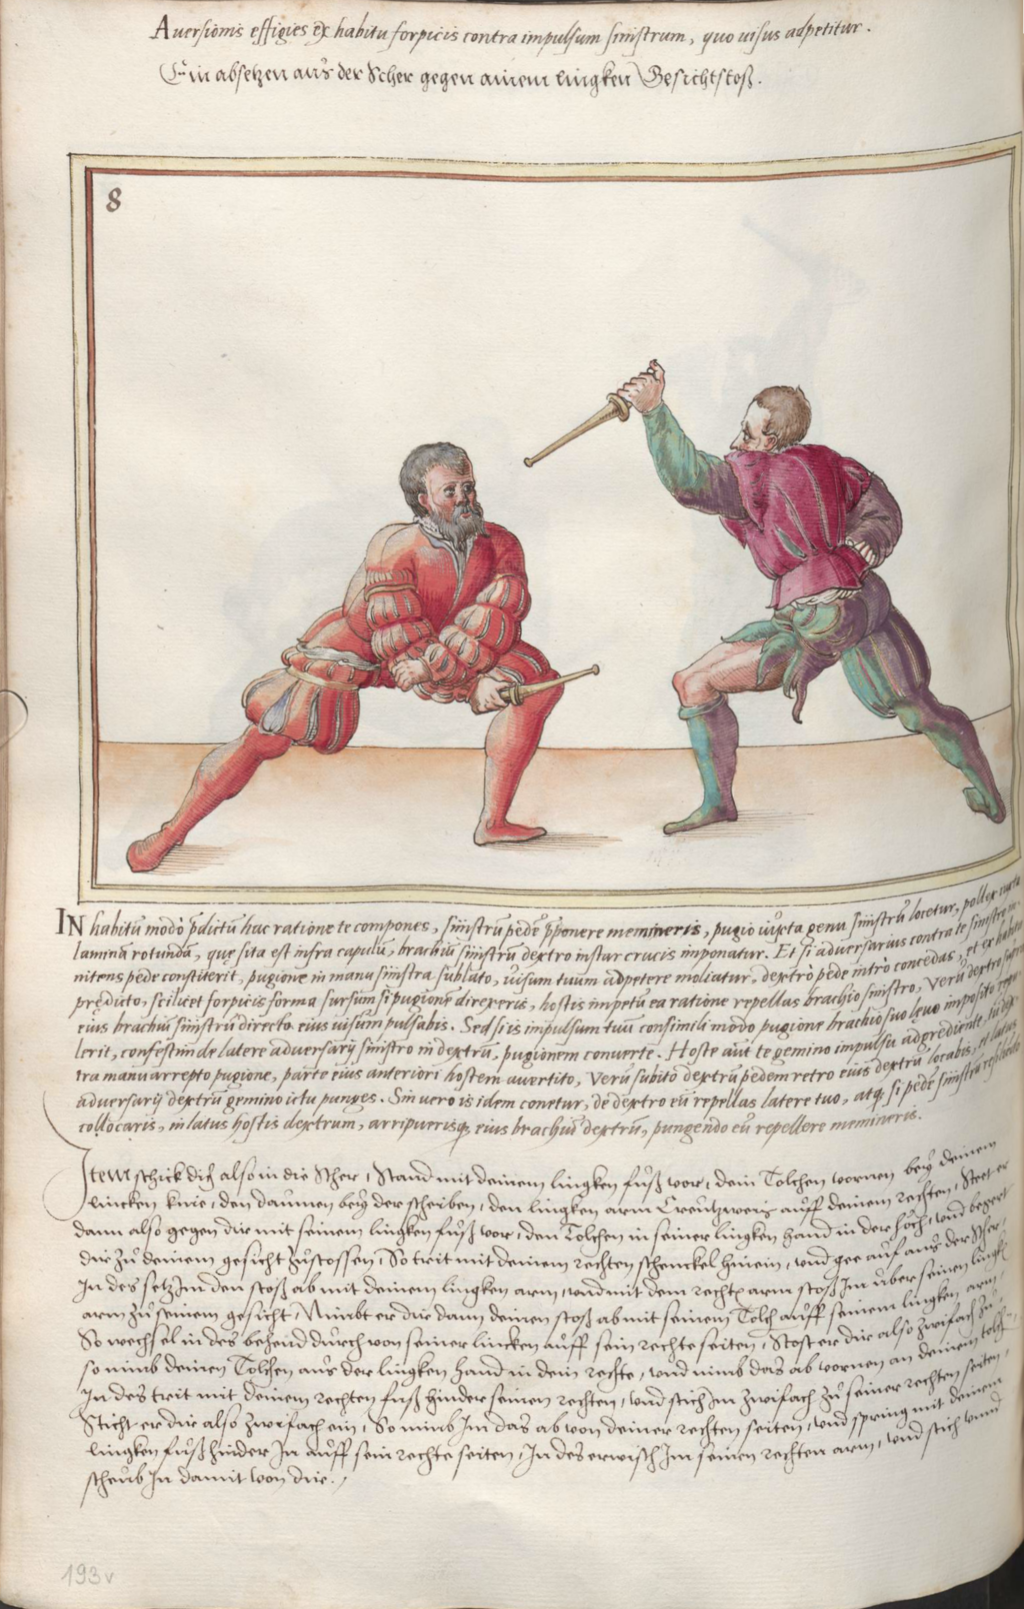 Aversionis effigies ex habitu forpicis contra impulsum sinistrum, quo visus adpetitur.
Ein absetzen aus der Scher gegen ainem lingken Gesichtstoß.
8
IN habitū modò p̄dictū hac ratione te compones, sinistrū pedē p̄ponere memineris, pugio iuxta genu sinistrū locetur, pollex iuxta
laminā rotundā, quę sita est infra capulū, brachiū sinistrū dextro instar crucis imponatur. Et si adversarius contra te sinistro in-
nitens pede constiterit, pugione in manu sinistra sublato, visum tuum adpetere moliatur, dextrò pede intrò concedas, et ex habitu
prędicto, scilicet forpicis forma sursum si pugionē direxeris, hostis impetū ea ratione repellas brachio sinistro, verū dextro supra
eius brachiū sinistrū directo eius visum pulsabis. Sed si is impulsum tuū consimili modo pugione brachio suo levo imposito repu-
lerit, confestim de latere adversarij sinistro in dextrū, pugionem converte. Hoste aūt te gemino impulsu adgrediente, tu dex-
tra manu arrepto pugione, parte eius anteriori hostem avertito, verū subito dextrū pedem retro eius dextrū locabis, et latus
adversarij dextrū gemino ictu punges. Sin vero is idem conetur, de dextro eū repellas latere tuo, atq, si pedē sinistrū
collocaris, in latus hostis dextrum, arripuerisq, eius brachiū dextrū, pungendo eū repellere memineris.
Item schick dich also in die Scher, Stand mit deinem lingken fuß vor, dein Tolchen vornen bey deinem
lincken knie, den daumen bey der scheiben, den lingken arm Creutzweis auff deinem rechten, Steet er
dann also gegen dir mit seinem lingken fuß vor, den Tolchen in seiner lingken hand in der höch, und begert
dir zu deinem gesicht zustossen, So trit mit deinem rechten schenckel hinein, und gee auf aus der Scher,
In des setz Im den stoß ab mit deinem lingken arm, und mit dem rechtē arm stoß Im über seinen lingkē
arm zu seinem gesicht, Nimbt er dir dann deinen stoß ab mit seinem Tolch auff seinem lingken arm,
So wechsel in des behend durch von seiner lincken auff sein rechte seiten, Stost er dir also zwifach zu
so nimb deinen Tolchen aus der lingken hand in dein rechte, und nimb das ab vornen an deinem tolchē
In des trit mit deinem rechten fuß hinder seinen rechten, und stich Im zwifach zu seiner rechten seiten,
Sticht er dir also zwifach ein, So nimb Im das ab von deiner rechten seiten, und spring mit deinem
lingken fuß hinder In auff sein rechte seiten, In des erwisch Im seinen rechten arm, und stich unnd
scheub In damit von dir.
193v